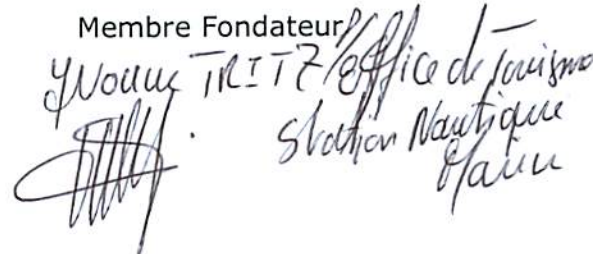 Membre Fondateur
Yvonne TRITZ / Office de Tourisme
Station Nautique
Marin